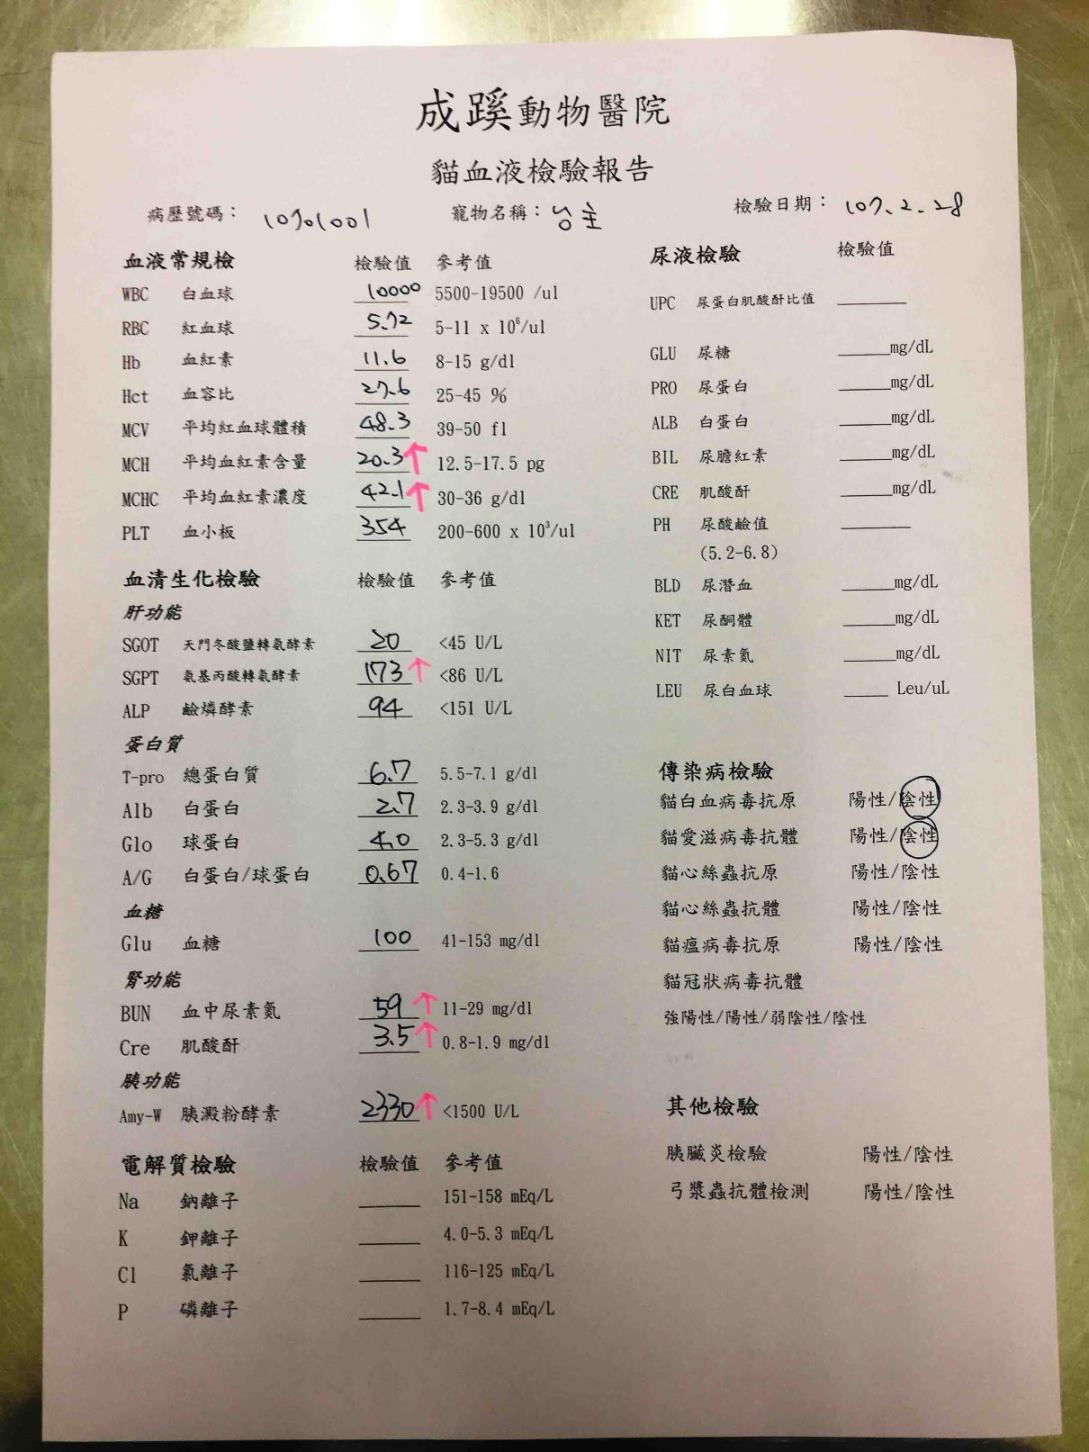 成蹊動物醫院
貓血液檢驗報告
病歷號碼： 10701001 寵物名稱： 主 檢驗日期： 107.2.28
血液常規檢 檢驗值 參考值
WBC 白血球 10000 5500-19500 /ul
RBC 紅血球 5.72 5-11 x 10⁶/ul
Hb 血紅素 11.6 8-15 g/dl
Hct 血容比 27.6 25-45 %
MCV 平均紅血球體積 48.3 39-50 fl
MCH 平均血紅素含量 20.3↑ 12.5-17.5 pg
MCHC 平均血紅素濃度 42.1↑ 30-36 g/dl
PLT 血小板 354 200-600 x 10³/ul
血清生化檢驗 檢驗值 參考值
肝功能
SGOT 天門冬酸鹽轉氨酵素 20 <45 U/L
SGPT 氨基丙酸轉氨酵素 173↑ <86 U/L
ALP 鹼燐酵素 94 <151 U/L
蛋白質
T-pro 總蛋白質 6.7 5.5-7.1 g/dl
Alb 白蛋白 2.7 2.3-3.9 g/dl
Glo 球蛋白 4.0 2.3-5.3 g/dl
A/G 白蛋白/球蛋白 0.67 0.4-1.6
血糖
Glu 血糖 100 41-153 mg/dl
腎功能
BUN 血中尿素氮 59↑ 11-29 mg/dl
Cre 肌酸酐 3.5↑ 0.8-1.9 mg/dl
胰功能
Amy-W 胰澱粉酵素 2330↑ <1500 U/L
電解質檢驗 檢驗值 參考值
Na 鈉離子 151-158 mEq/L
K 鉀離子 4.0-5.3 mEq/L
Cl 氯離子 116-125 mEq/L
P 磷離子 1.7-8.4 mEq/L
尿液檢驗 檢驗值
UPC 尿蛋白肌酸酐比值
GLU 尿糖 mg/dL
PRO 尿蛋白 mg/dL
ALB 白蛋白 mg/dL
BIL 尿膽紅素 mg/dL
CRE 肌酸酐 mg/dL
PH 尿酸鹼值
(5.2-6.8)
BLD 尿潛血 mg/dL
KET 尿酮體 mg/dL
NIT 尿素氮 mg/dL
LEU 尿白血球 Leu/uL
傳染病檢驗
貓白血病毒抗原 陽性/陰性
貓愛滋病毒抗體 陽性/陰性
貓心絲蟲抗原 陽性/陰性
貓心絲蟲抗體 陽性/陰性
貓瘟病毒抗原 陽性/陰性
貓冠狀病毒抗體
強陽性/陽性/弱陰性/陰性
其他檢驗
胰臟炎檢驗 陽性/陰性
弓漿蟲抗體檢測 陽性/陰性